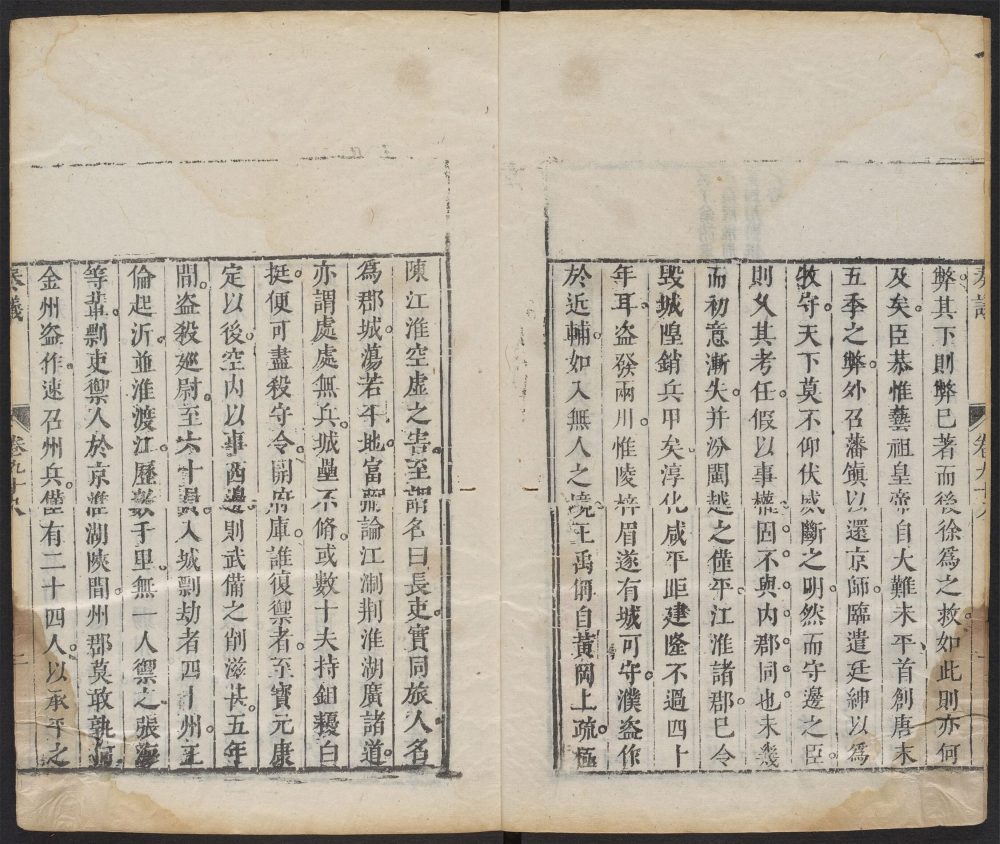 弊其下則弊巳著而後徐爲之救如此則亦何
及矣臣恭惟藝祖皇帝自大難未平首創唐末
五季之弊外召藩鎭以還京師臨遣廷紳以爲
牧守天下莫不仰伏威斷之明然而守邊之臣
則久其考任假以事權固不與内郡同也未幾
而初意漸失并汾閩越之僅平江淮諸郡巳令
毀城隍銷兵甲矣淳化咸平距建隆不過四十
年耳盗發兩川惟陵梓眉遂有城可守濮盗作
於近輔如入無人之境王禹偁自黄岡上疏極
陳江淮空虛之害至謂名曰長吏實同旅人名
爲郡城蕩若平地富弼論江淛荆淮湖廣諸道
亦謂處處無兵城壘不脩或數十夫持鉏耰白
挺便可盡殺守令開府庫誰復禦者至寶元康
定以後空内以事西邊則武備之削滋甚五年
間盗殺廵尉至六十員入城剽劫者四十州王
倫起沂並淮渡江歷數千里無一人禦之張海
等輩剽吏禦人於京淮湖陝間州郡莫敢孰何
金州盗作速召州兵僅有二十四人以承平之
奏議
卷九十八
二